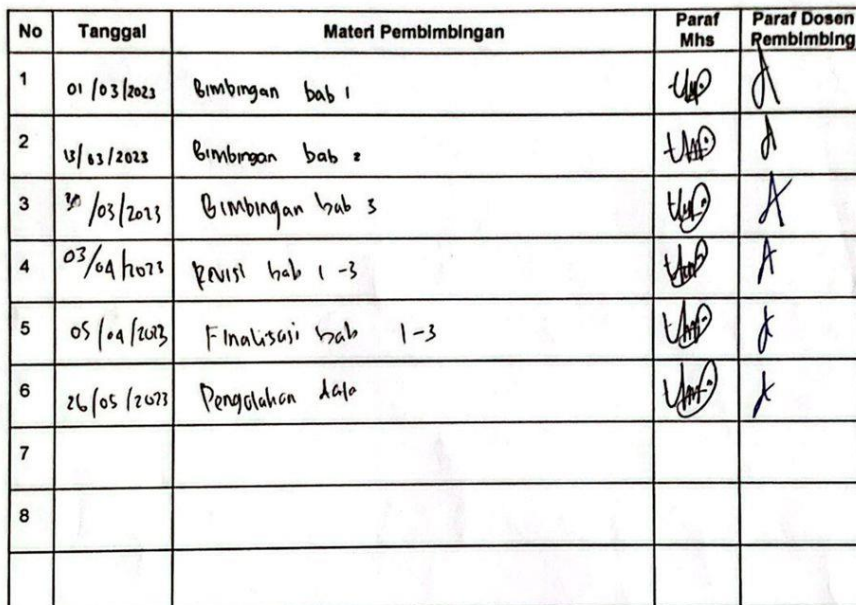 No Tanggal Materi Pembimbingan Paraf Mhs Paraf Dosen Pembimbing
1 01/03/2023 Bimbingan bab 1
2 13/03/2023 Bimbingan bab 2
3 30/03/2023 Bimbingan bab 3
4 03/04/2023 Revisi bab 1-3
5 05/04/2023 Finalisasi bab 1-3
6 26/05/2023 Pengolahan data
7
8